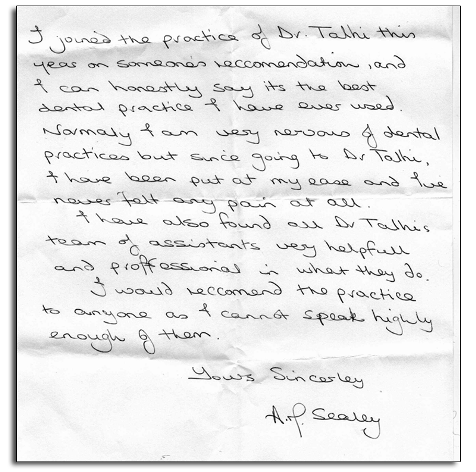 I joined the practice of Dr. Talhi this
year on someone's reccomendation, and
I can honestly say its the best
dental practice I have ever used.
Normaly I am very nervous of dental
practices but since going to Dr Talhi,
I have been put at my ease and I've
never felt any pain at all.
I have also found all Dr Talhi's
team of assistants very helpfull
and proffessional in what they do.
I would reccomend the practice
to anyone as I cannot speak highly
enough of them.
Yours Sincerley
A.P. Sealey